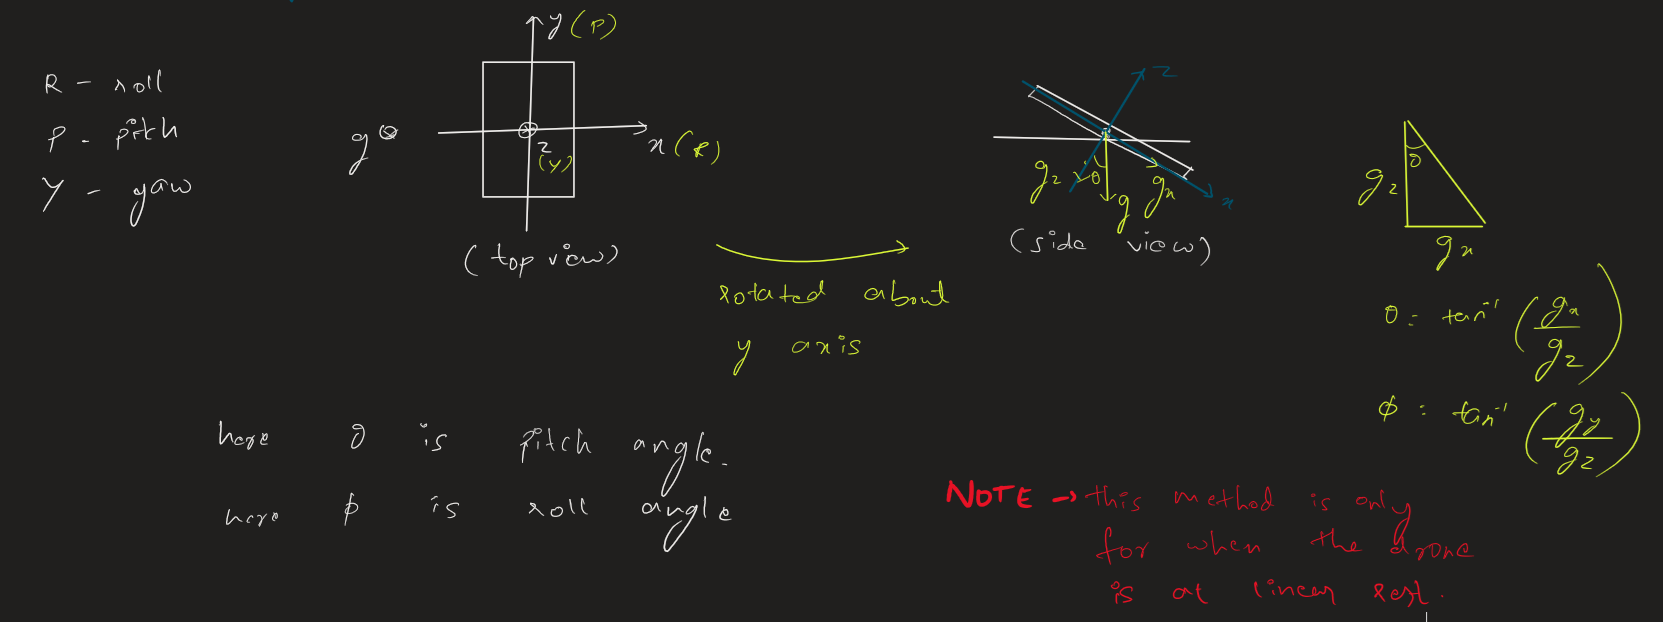 R - roll
P - pitch
Y - yaw
y (P)
g ⊗
x (R)
z
(Y)
(top view)
rotated about
y axis
z
g_z θ g g_x
x
(side view)
θ
g_z
g_x
θ = tan⁻¹ (g_x / g_z)
φ = tan⁻¹ (g_y / g_z)
here θ is pitch angle.
here φ is roll angle
NOTE → this method is only
for when the drone
is at linear rest.